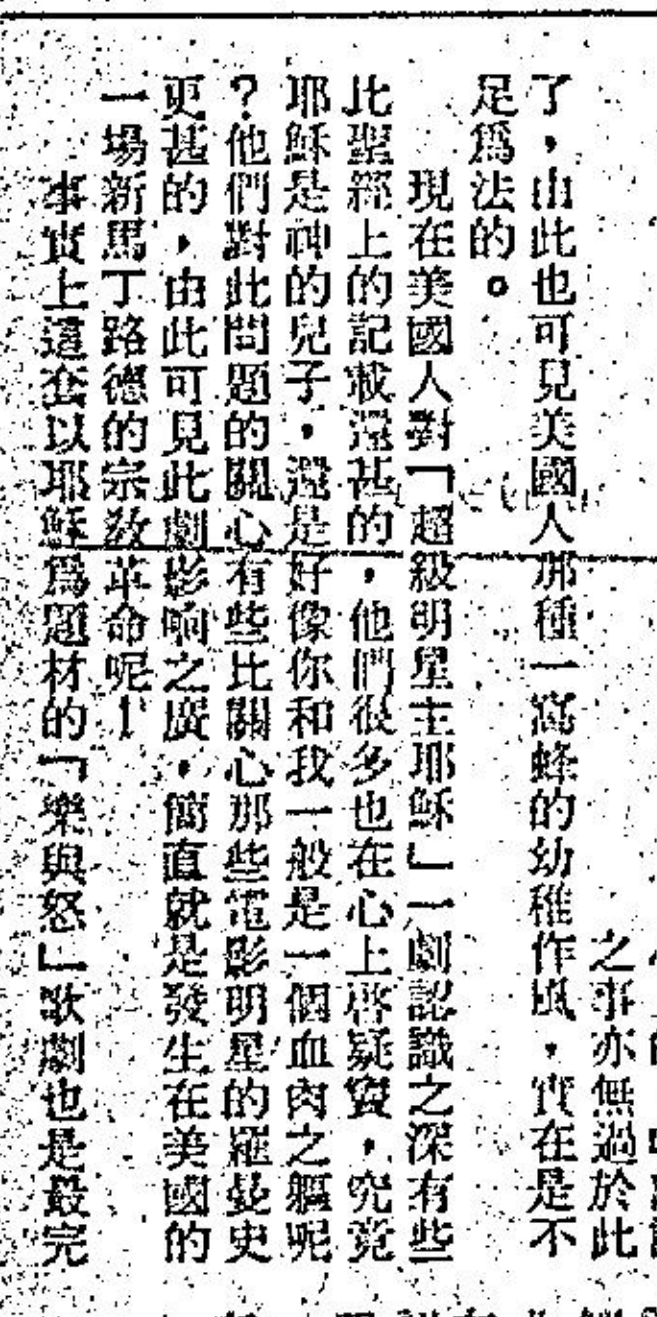 之事亦無過於此
了，由此也可見美國人那種一窩蜂的幼稚作風，實在是不
足爲法的。
現在美國人對「超級明星主耶穌」一劇認識之深有些
比聖經上的記載還甚的，他們很多也在心上啓疑竇，究竟
耶穌是神的兒子，還是好像你和我一般是一個血肉之軀呢
？他們對此問題的關心有些比關心那些電影明星的羅曼史
更甚的，由此可見此劇影响之廣，簡直就是發生在美國的
一場新馬丁路德的宗教革命呢！
事實上這套以耶穌爲題材的「樂與怒」歌劇也是最完